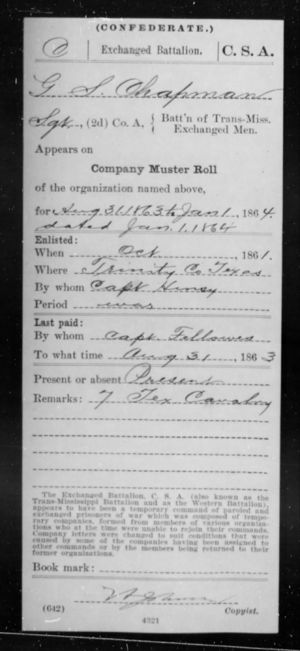 (CONFEDERATE.)
C Exchanged Battalion. C. S. A.
G. S. Chapman
Sgt., (2d) Co. A, { Batt'n of Trans-Miss. Exchanged Men.
Appears on
Company Muster Roll
of the organization named above,
for Aug 31, 1863 to Jan 1, 1864.
dated Jan. 1, 1864
Enlisted:
When Oct, 1861.
Where Trinity Co. Texas
By whom Capt
Period war
Last paid:
By whom Capt. Fellows
To what time Aug 31, 1863
Present or absent Present
Remarks: 7 Tex Cavalry
The Exchanged Battalion, C. S. A. (also known as the
Trans-Mississippi Battalion and as the Western Battalion),
appears to have been a temporary command of paroled and
exchanged prisoners of war which was composed of tempo-
rary companies, formed from members of various organiza-
tions who at the time were unable to rejoin their commands.
Company letters were changed to suit conditions that were
caused by some of the companies having been assigned to
other commands or by the members being returned to their
former organizations.
Book mark:
(642) Copyist.
4321